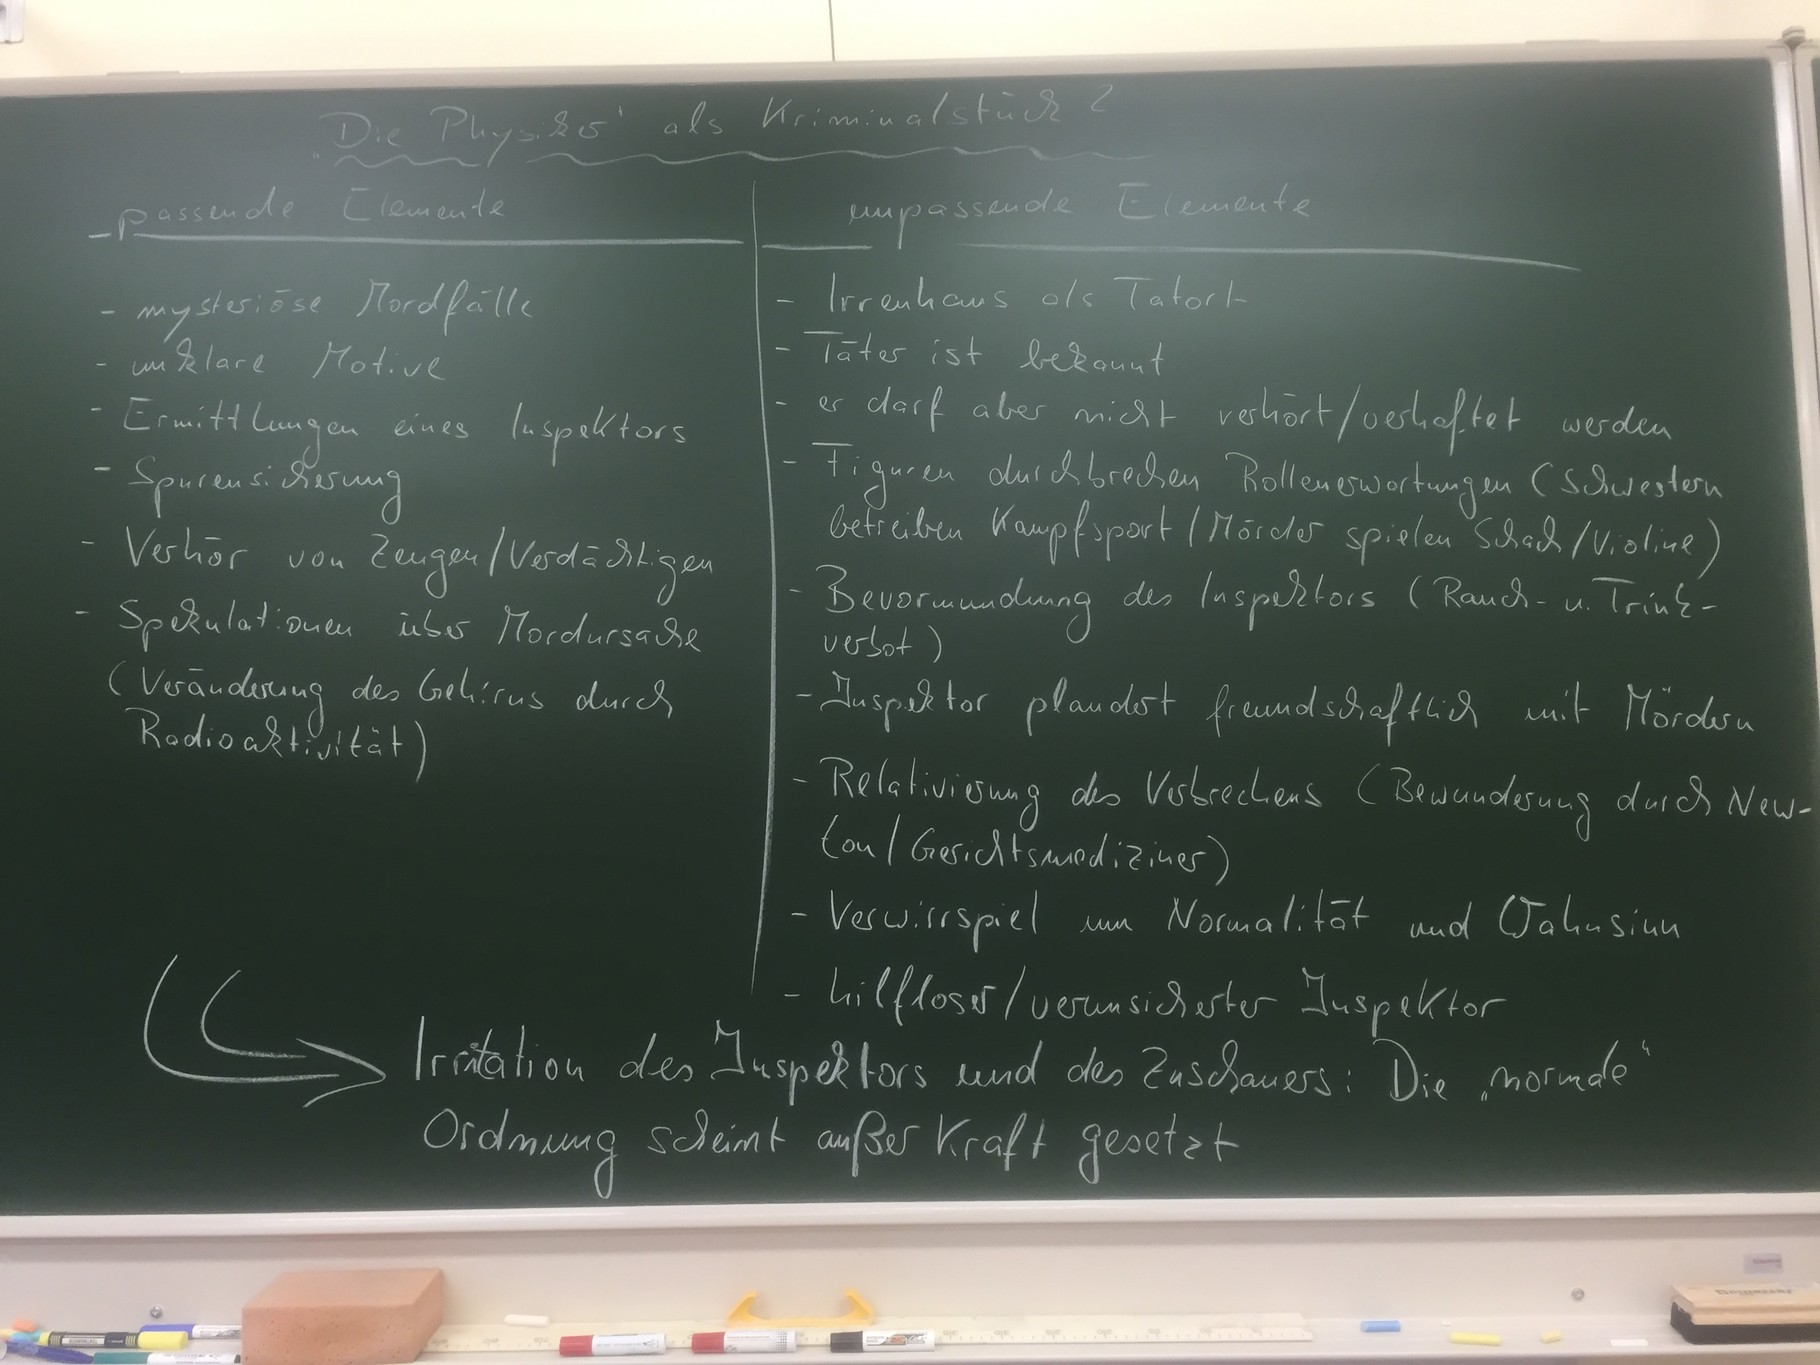 „Die Physiker" als Kriminalstück?
passende Elemente
- mysteriöse Mordfälle
- unklare Motive
- Ermittlungen eines Inspektors
- Spurensicherung
- Verhör von Zeugen/Verdächtigen
- Spekulationen über Mordursache
(Veränderung des Gehirns durch
Radioaktivität)
unpassende Elemente
- Irrenhaus als Tatort
- Täter ist bekannt
- er darf aber nicht verhört/verhaftet werden
- Figuren durchbrechen Rollenerwartungen (Schwestern
betreiben Kampfsport/Mörder spielen Schach/Violine)
- Bevormundung des Inspektors (Rauch- u. Trink-
verbot)
- Inspektor plaudert freundschaftlich mit Mördern
- Relativierung des Verbrechens (Bewunderung durch New-
ton/Gerichtsmediziner)
- Verwirrspiel um Normalität und Wahnsinn
- hilfloser/verunsicherter Inspektor
Irritation des Inspektors und des Zuschauers: Die „normale"
Ordnung scheint außer Kraft gesetzt